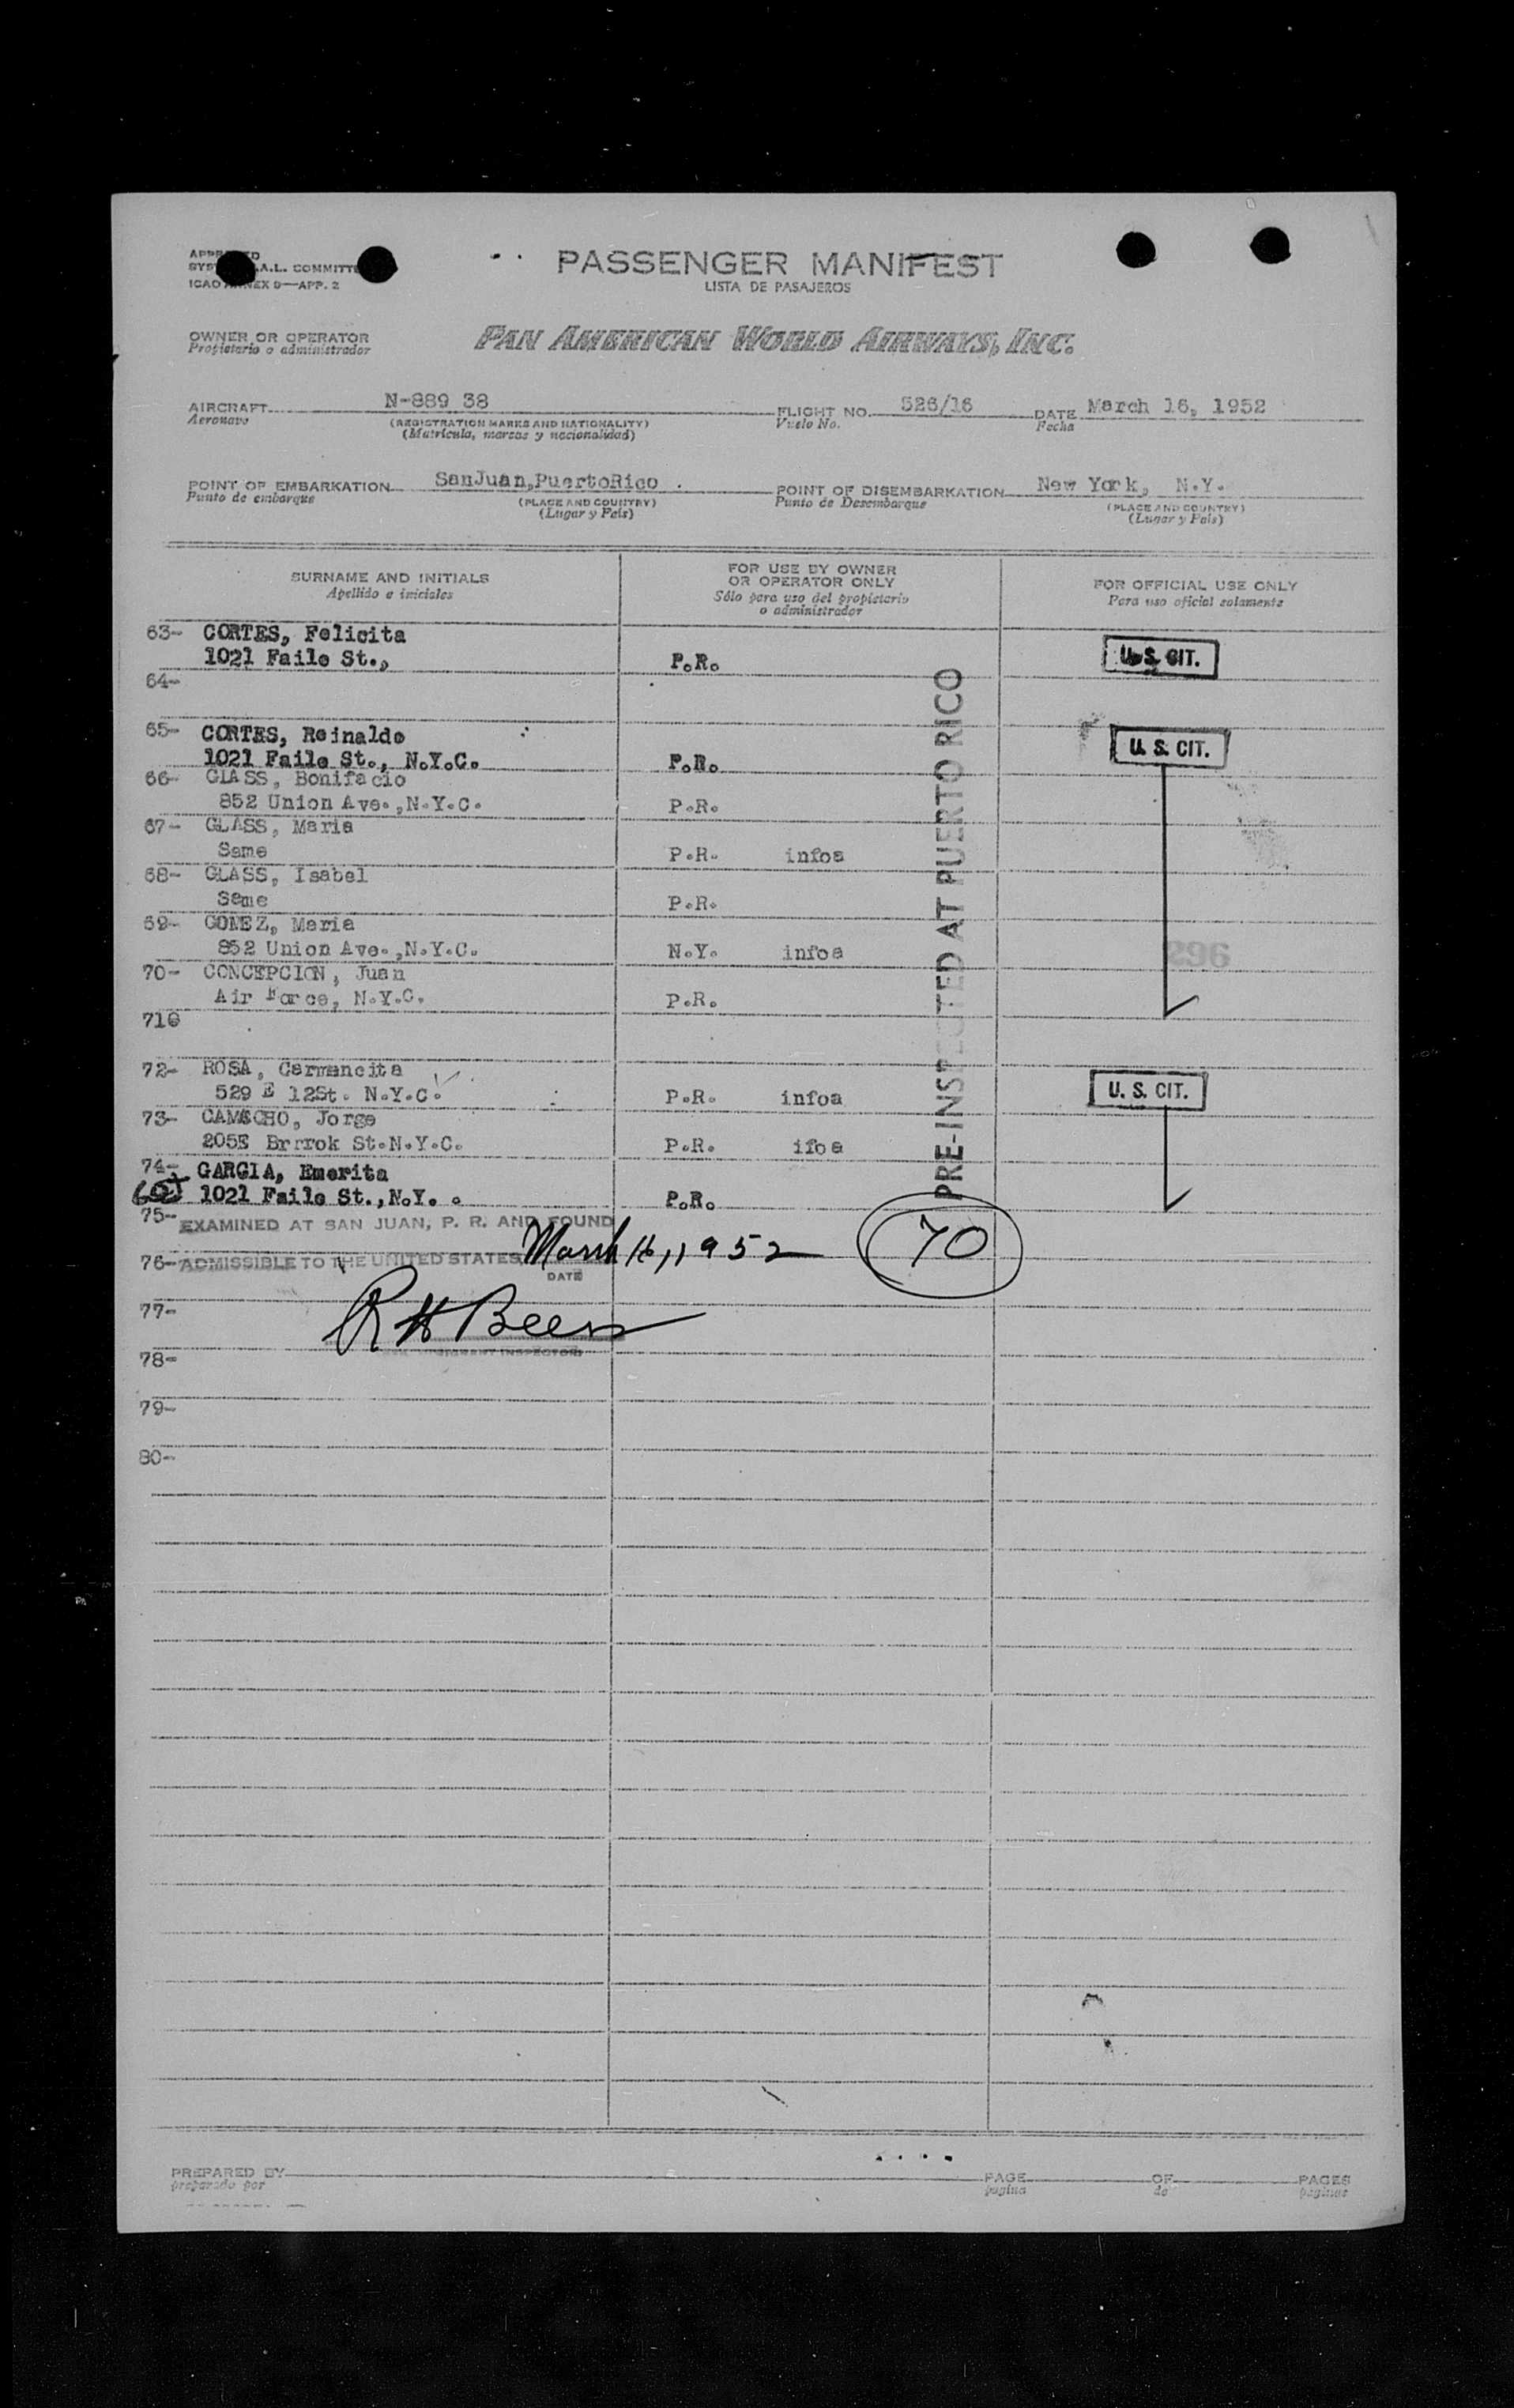 PASSENGER MANIFEST
LISTA DE PASAJEROS
A.L. COMMITTE
ICAO ANNEX 9—APP. 2
OWNER OR OPERATOR
Propietario o administrador
PAN AMERICAN WORLD AIRWAYS, INC.
AIRCRAFT N-889 38 FLIGHT NO. 526/16 DATE March 16, 1952
Aeronave (REGISTRATION MARKS AND NATIONALITY) Vuelo No. Fecha
(Matrícula, marcas y nacionalidad)
POINT OF EMBARKATION SanJuan,PuertoRico . POINT OF DISEMBARKATION New York, N.Y.
Punto de embarque (PLACE AND COUNTRY) Punto de Desembarque (PLACE AND COUNTRY)
(Lugar y País) (Lugar y País)
SURNAME AND INITIALS
Apellido e iniciales
FOR USE BY OWNER
OR OPERATOR ONLY
Sólo para uso del propietario
o administrador
FOR OFFICIAL USE ONLY
Para uso oficial solamente
63- CORTES, Felicita
1021 Faile St., P.R. U.S. CIT.
64-
65- CORTES, Reinaldo
1021 Faile St., N.Y.C. P.R. U. S. CIT.
66- GLASS, Bonifacio
852 Union Ave.,N.Y.C. P.R.
67- GLASS, Maria
Same P.R. infoa
68- GLASS, Isabel
Same P.R.
69- GOMEZ, Maria
852 Union Ave.,N.Y.C. N.Y. infoa
70- CONCEPCION, Juan
Air Force, N.Y.C. P.R.
710
72- ROSA, Carmencita
529 E 12St. N.Y.C. P.R. infoa U. S. CIT.
73- CAMACHO, Jorge
205E Brrrok St.N.Y.C. P.R. ifoa
74- GARGIA, Emerita
1021 Faile St.,N.Y. . P.R.
PRE-INSPECTED AT PUERTO RICO
296
75- EXAMINED AT SAN JUAN, P. R. AND FOUND
76- ADMISSIBLE TO THE UNITED STATES March 16, 1952 70
DATE
77- R H Beers
IMMIGRANT INSPECTOR
78-
79-
80-
PREPARED BY PAGE OF PAGES
preparado por página de páginas